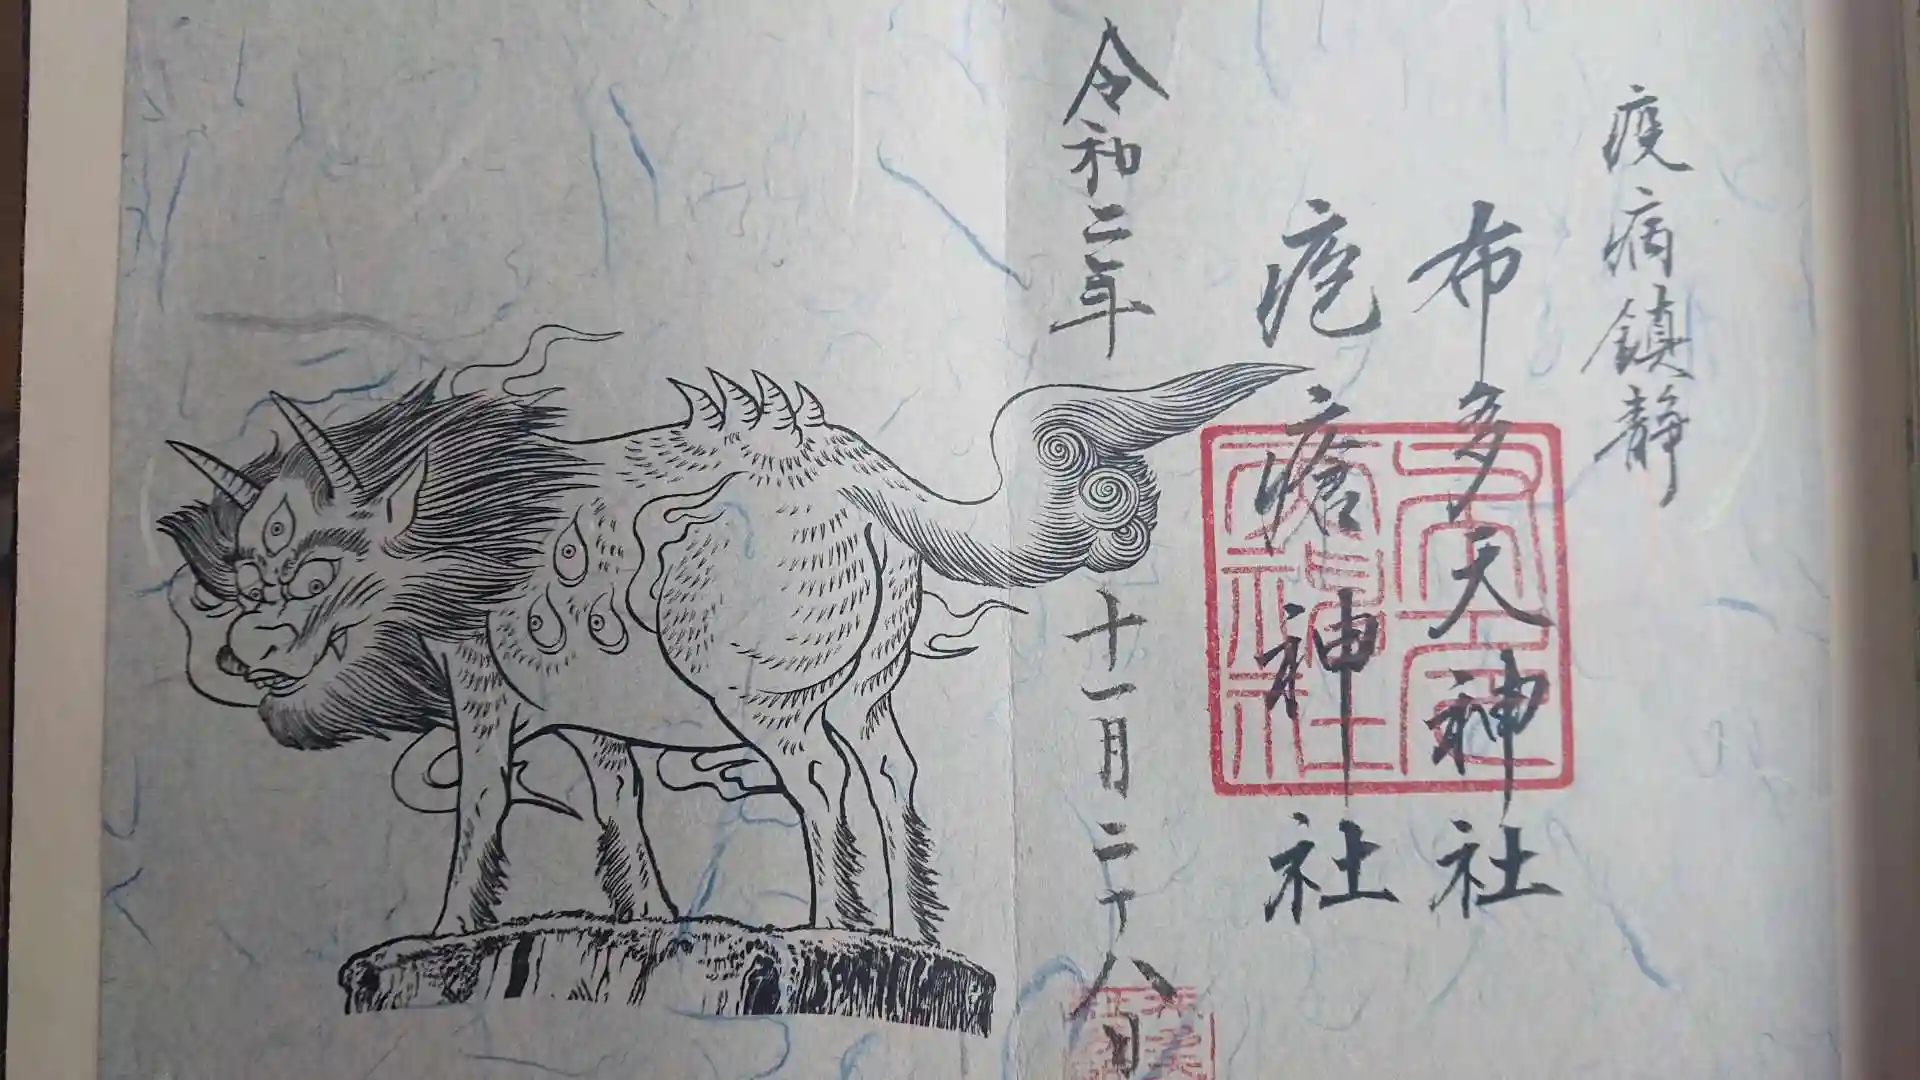 疫病鎮静
布多天神社
疱瘡神社
令和二年十一月二十八日